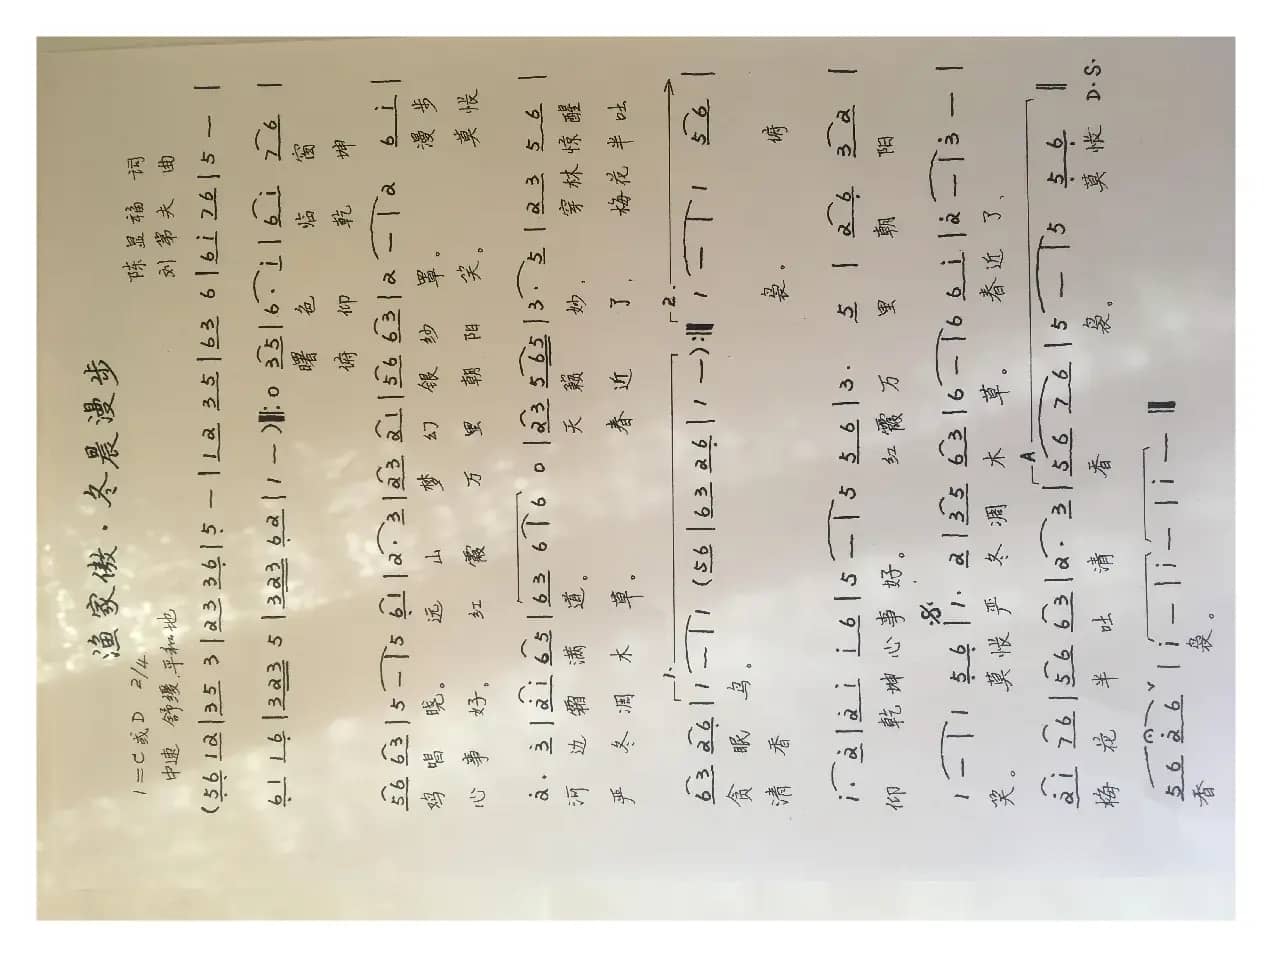 渔家傲·冬晨漫步
1=C或D 2/4
中速 舒缓.平和地
陈显福 词
刘第夫 曲
(56 12|35 3|23 36|5 -|12 35|63 6|6i 76|5 -|
61 16|323 5|323 62|1 -)‖:0 35|6· i|6i 76|
曙色临窗
俯仰乾坤
56 63|5 -|5 61|2· 3|23 21|56 63|2 -|2 6i|
鸡唱晓。远山梦幻银纱罩。漫步
心事好。红霞万里朝阳笑。莫怅
2· 3|2i 65|63 6|6 0|23 565|3· 5|23 56|
河边霜满道。天籁妙,穿林惊醒
严冬凋木草。春近了,梅花半吐
63 26|1 -|1 (56|63 26|1 -):‖1 -|1 56|
1. 2.
贪眠鸟。
清香袅。俯
i· 2|2i i6|5 -|5 56|3· 5|26 32|
仰乾坤心事好。红霞万里朝阳
1 -|1 56|1· 2|35 63|6 -|6 6i|2 -|3 -|
笑。莫怅严冬凋木草。春近了、
2i 76|56 63|2· 3|56 76|5 -|5 56‖
A
梅花半吐清香袅。莫怅 D.S.
56 26|i -|i -|i -‖
香袅。